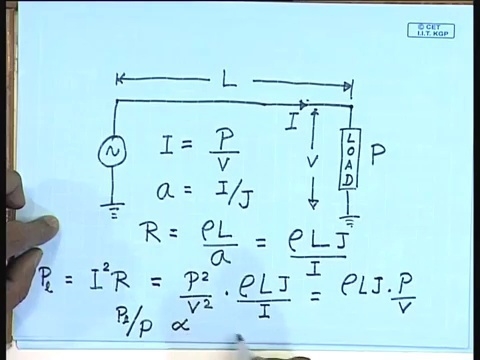 © CET
I.I.T. KGP
L
I
I = P/V
V
LOAD
P
a = I/J
R = ρL/a = ρLJ/I
P_l = I²R = P²/V² · ρLJ/I = ρLJ · P/V
P_l/P ∝